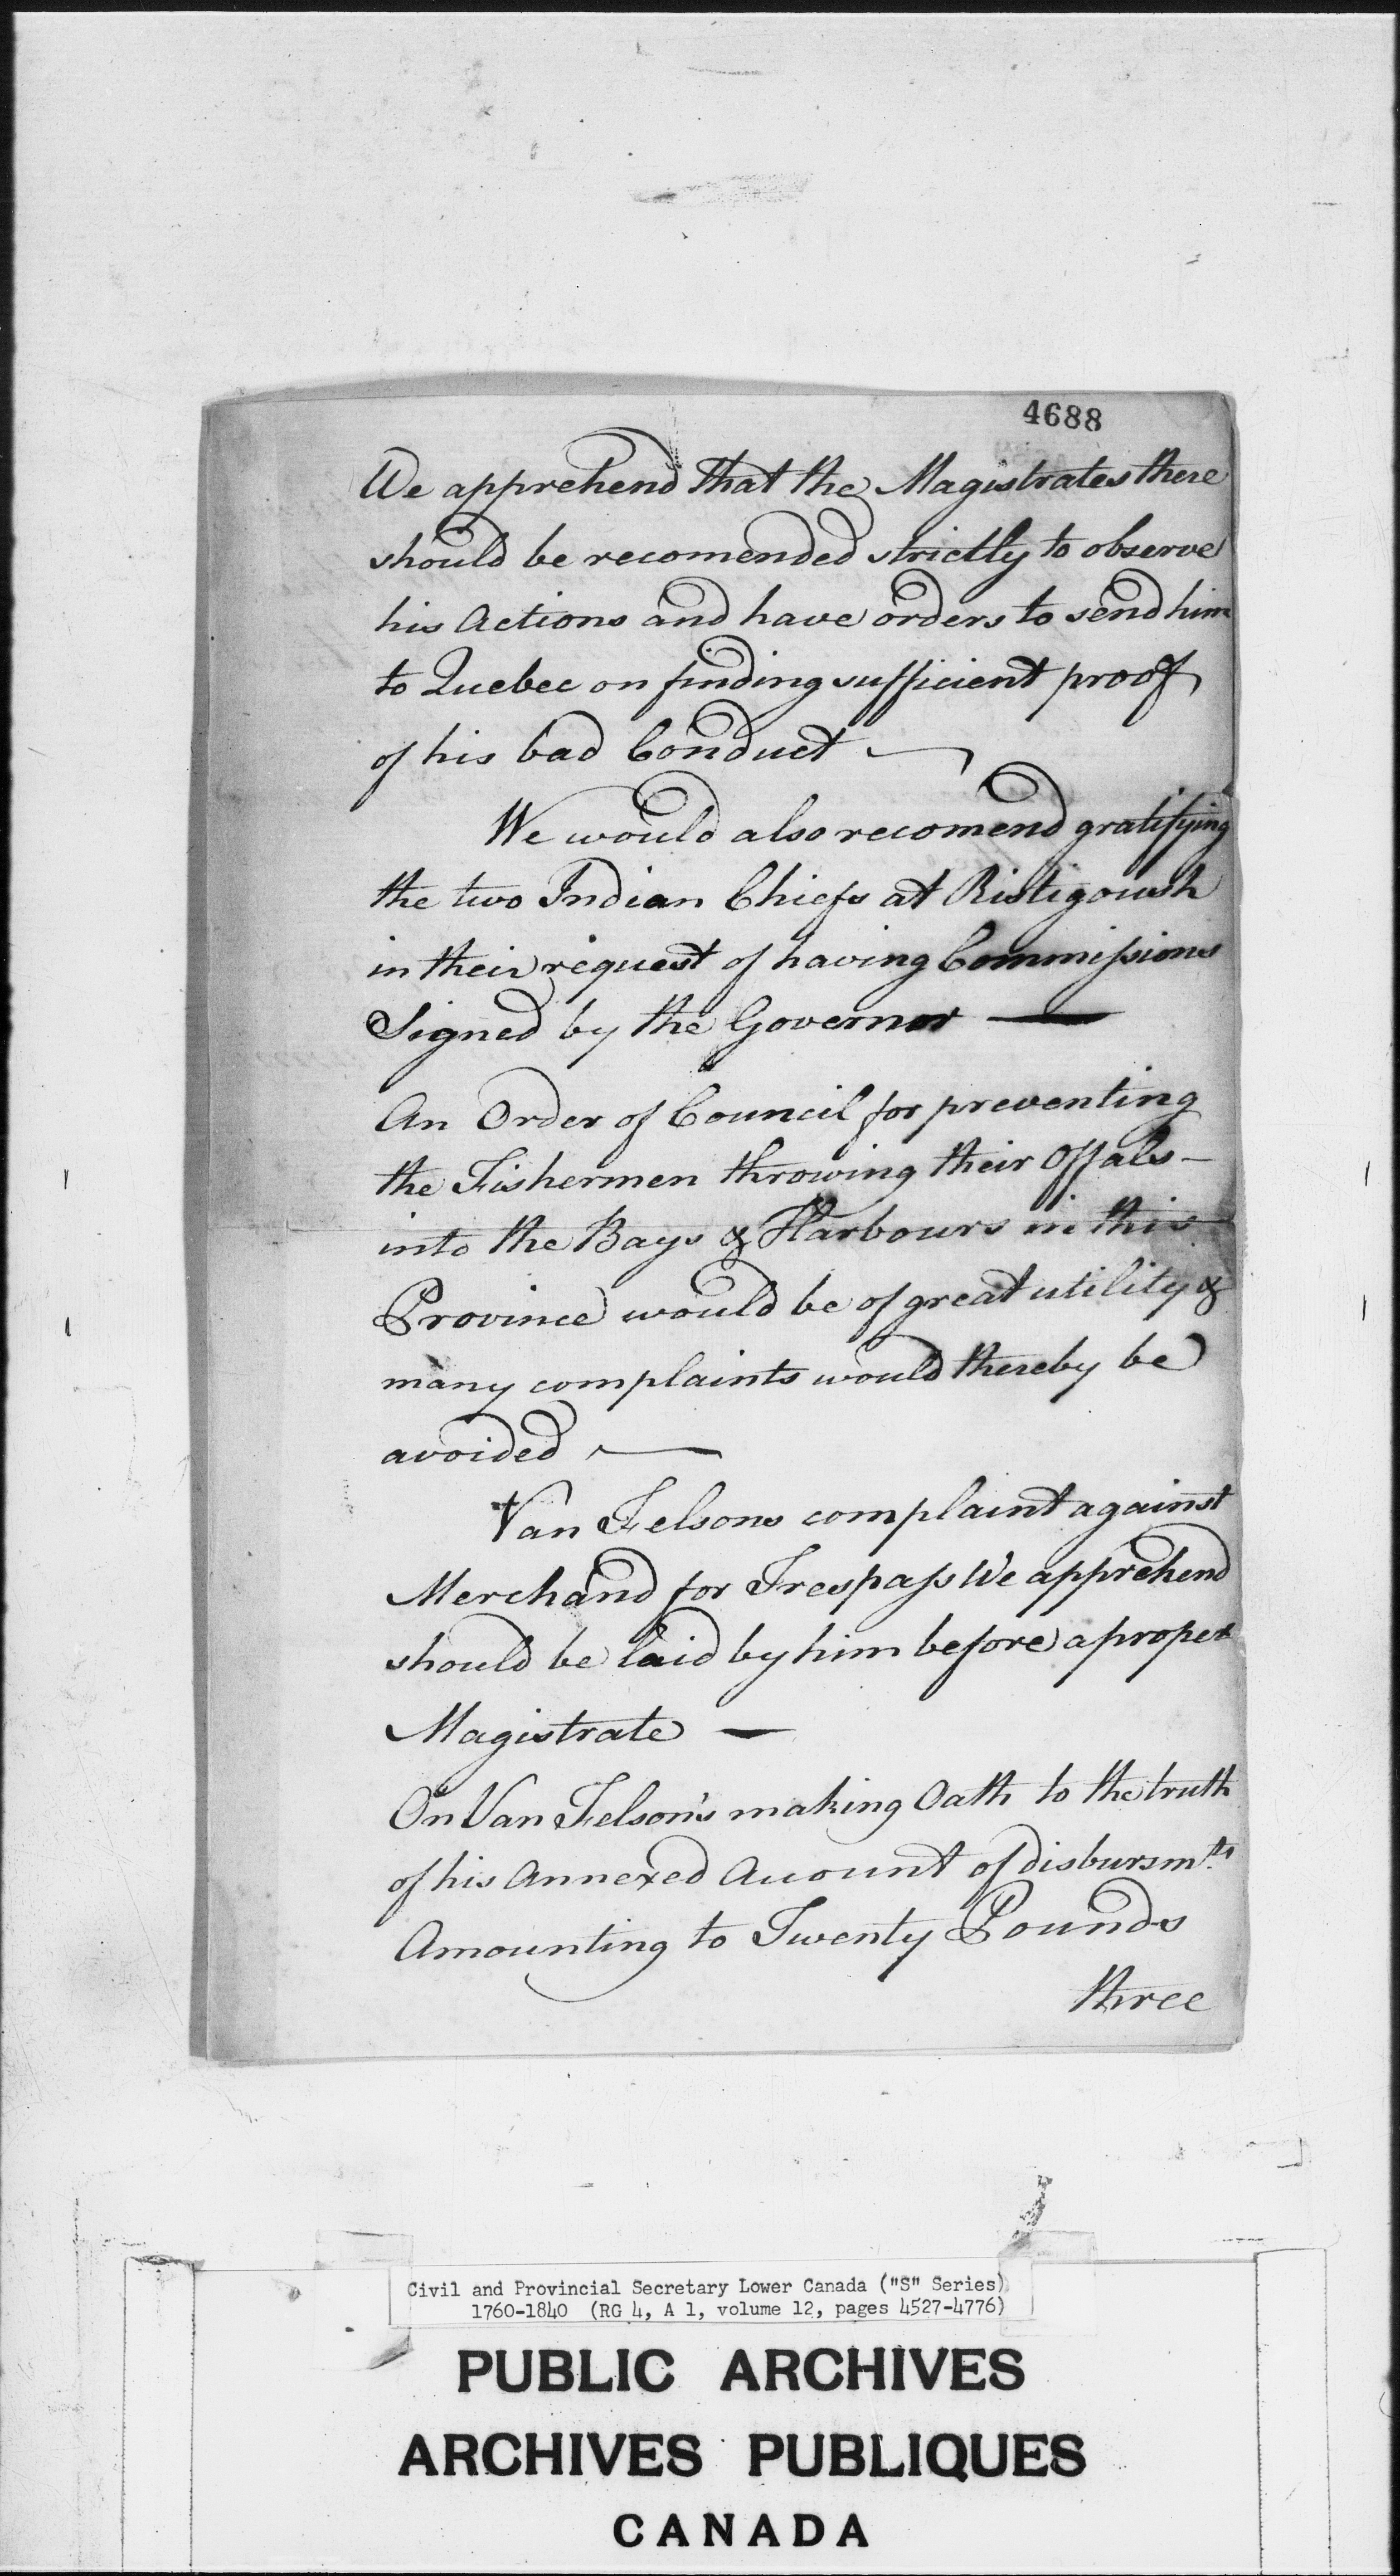 4688
We apprehend that the Magistrates there
should be recomended strictly to observe
his Actions and have orders to send him
to Quebec on finding sufficient proof
of his bad Conduct —
We would also recomend gratifying
the two Indian Chiefs at Ristigoush
in their request of having Commissions
Signed by the Governor —
An Order of Council for preventing
the Fishermen throwing their Offals —
into the Bays & Harbours in this
Province would be of great utility &
many complaints would thereby be
avoided —
Van Felsons complaint against
Merchand for Trespass We apprehend
should be laid by him before a proper
Magistrate —
On Van Felson's making Oath to the truth
of his Annexed Account of disbursmts.
Amounting to Twenty Pounds
three
Civil and Provincial Secretary Lower Canada ("S" Series)
1760-1840 (RG 4, A 1, volume 12, pages 4527-4776)
PUBLIC ARCHIVES
ARCHIVES PUBLIQUES
CANADA